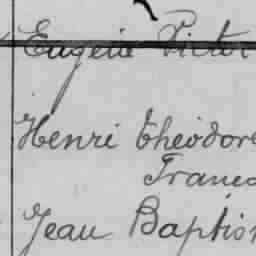 Eugène Victor
Henri Théodore
Franç
Jean Baptis